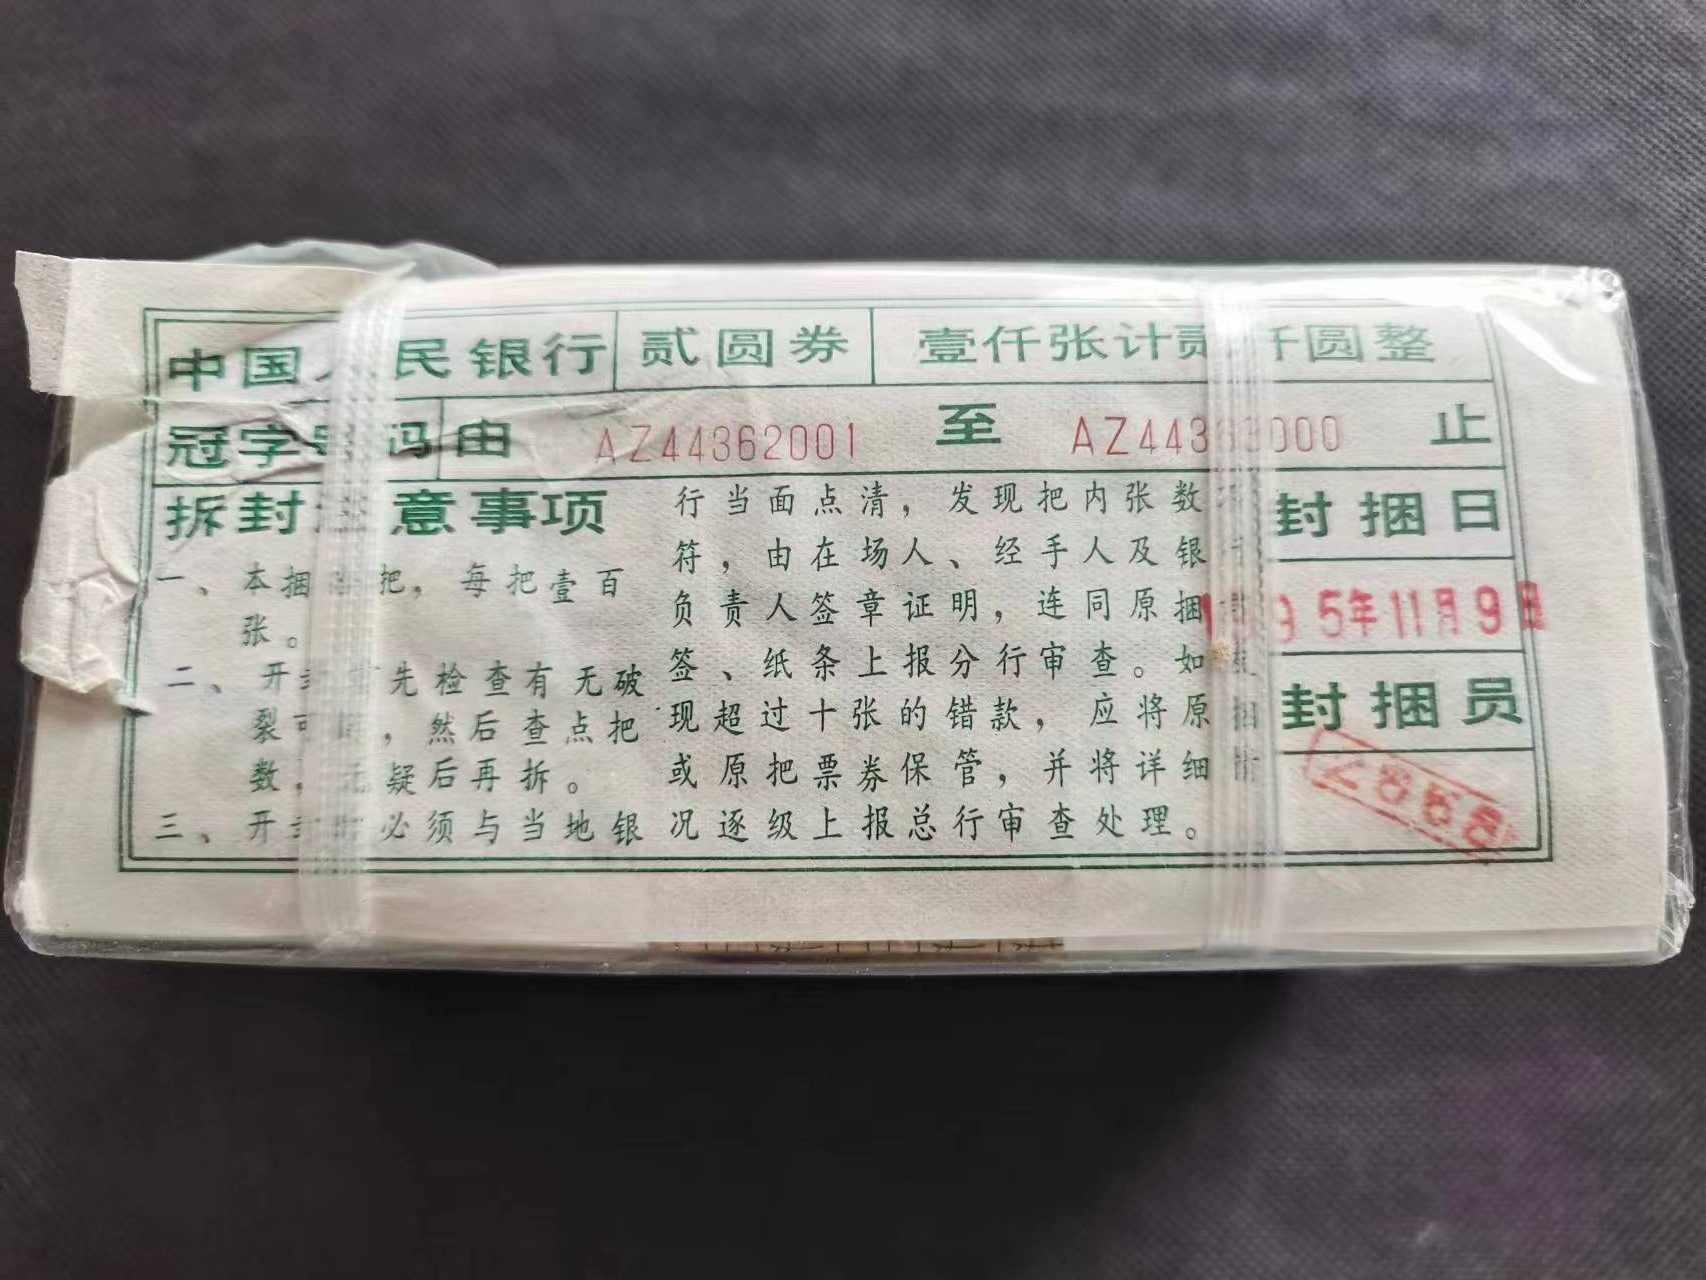 中国人民银行 贰圆券 壹仟张计贰仟圆整
冠字号码 由 AZ44362001 至 AZ44363000 止
拆封注意事项
一、本捆 把，每把壹百
张。
二、开 先检查有无破
裂可 ，然后查点把
数， 无疑后再拆。
三、开 必须与当地银
行当面点清，发现把内张数
符，由在场人、经手人及银
负责人签章证明，连同原捆
签、纸条上报分行审查。如
现超过十张的错款，应将原捆
或原把票券保管，并将详细情
况逐级上报总行审查处理。
封捆日
1995年11月9日
封捆员